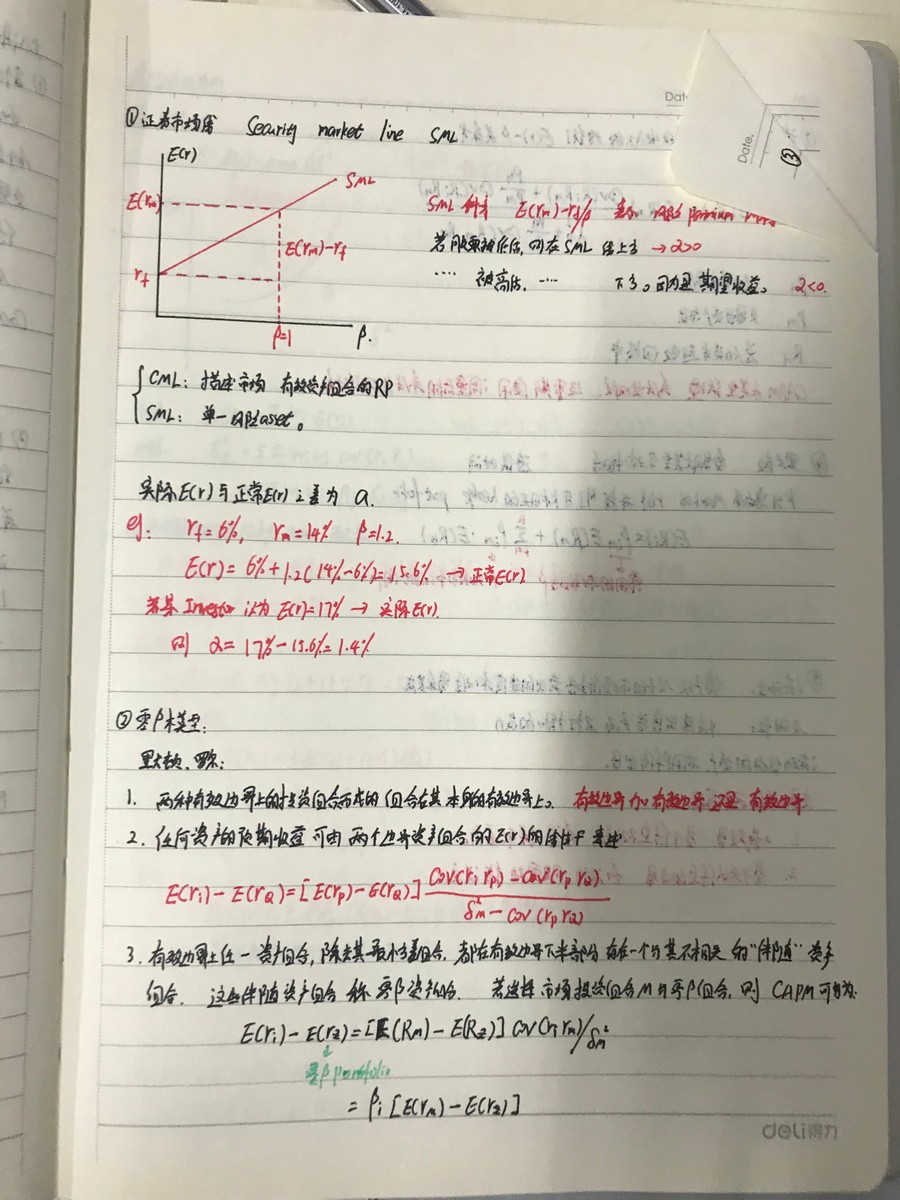 Date.
Date.
③
① 证券市场线 Security market line SML
E(r)
SML
E(rm)
E(rm)-rf
rf
β=1
β.
SML 斜率 E(rm)-rf/β
若股票被低估,则在SML线上方 → α>0
.... 被高估, .... 下方。因为是期望收益。 α<0.
CML: 描述市场 有效资产组合的RP
SML: 单一风险asset。
实际E(r)与正常E(r)之差为 α.
eg: rf=6%, rm=14% β=1.2.
E(r)= 6%+1.2(14%-6%)=15.6% → 正常E(r)
若某Investor 认为 E(r)=17% → 实际E(r).
则 α= 17%-15.6%=1.4%
② 零β模型:
默顿、罗尔:
1. 两种有效边界上的投资组合而成的组合在其本身的有效边界上。 有效边界 加 有效边界 还是 有效边界.
2. 任何资产的预期收益 可由 两个边界资产组合的E(r)的线性F表达
E(ri) - E(rQ) = [E(rp) - E(rQ)] Cov(ri rp) - Cov(rp rQ) / δ²m - Cov(rp rQ)
3. 有效边界上任一资产组合, 除去其最小方差组合, 都在有效边界下半部分 存在一个与其不相关 的"伴随"资产
组合. 这些伴随资产组合 称 零β资产组合. 若选择 市场投资组合M与零β组合, 则 CAPM可变为:
E(ri) - E(rz) = [E(Rm) - E(Rz)] Cov(ri rm)/δ²m
零β portfolio
= βi [E(rm) - E(rz)]
deli得力